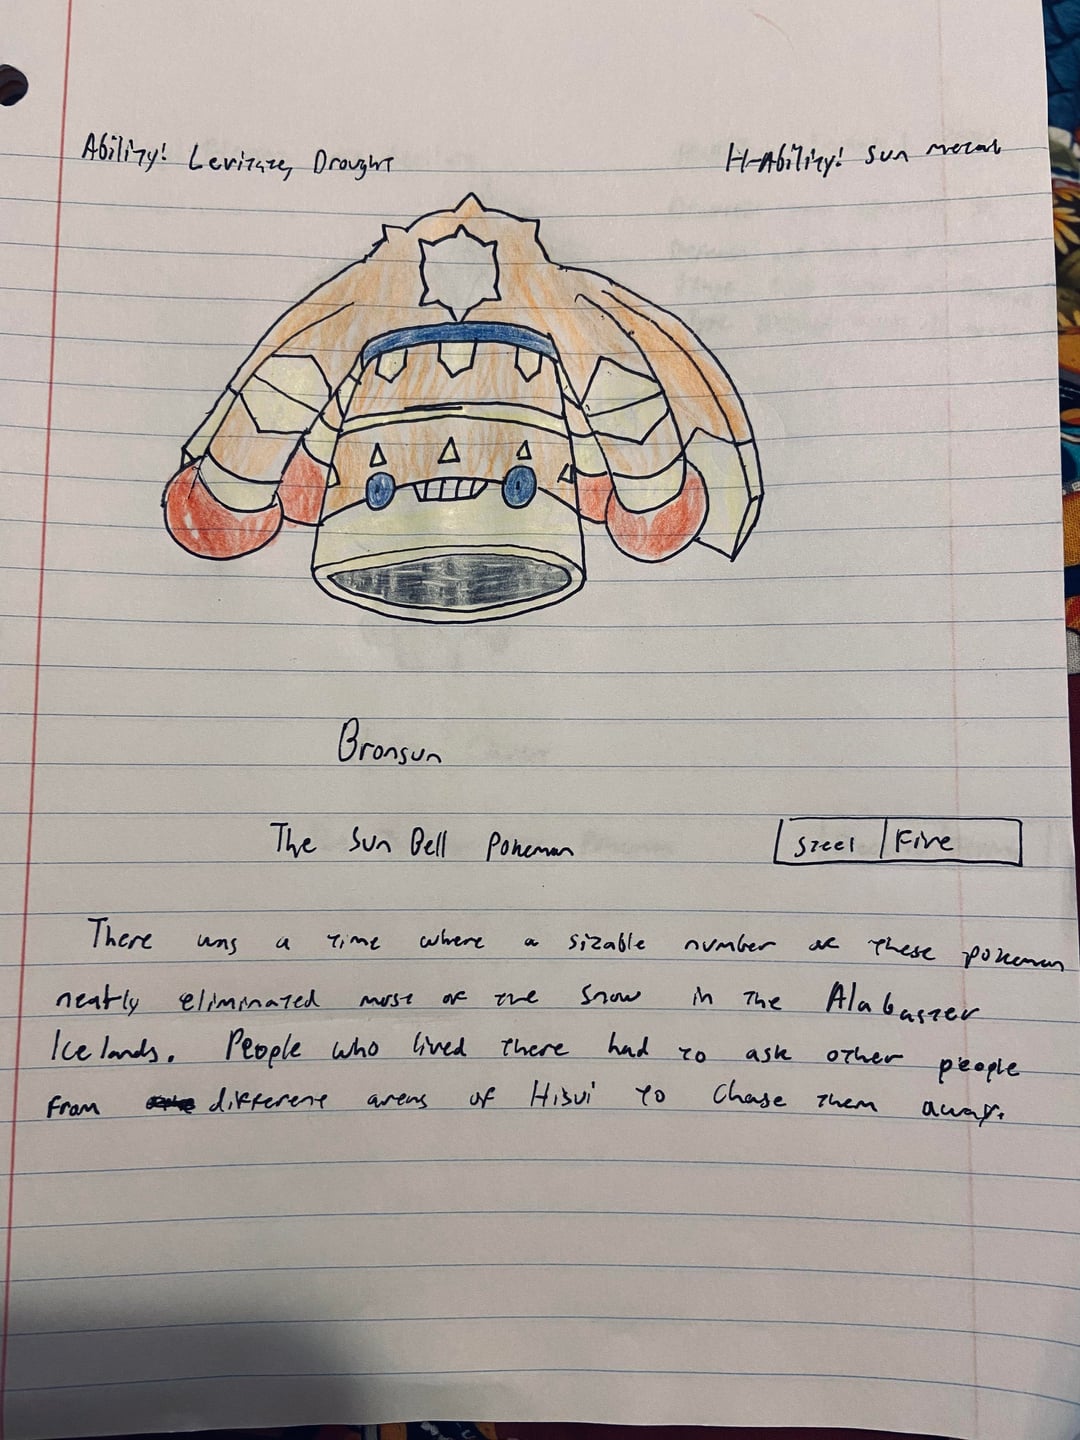 Ability! Levitate, Drought
H-Ability! Sun metal
Bronsun
The Sun Bell Pokemon
Steel | Fire
There was a time where a sizable number of these pokemon
neatly eliminated most of the Snow in the Alabaster
Icelands. People who lived there had to ask other people
from different areas of Hisui to chase them away.